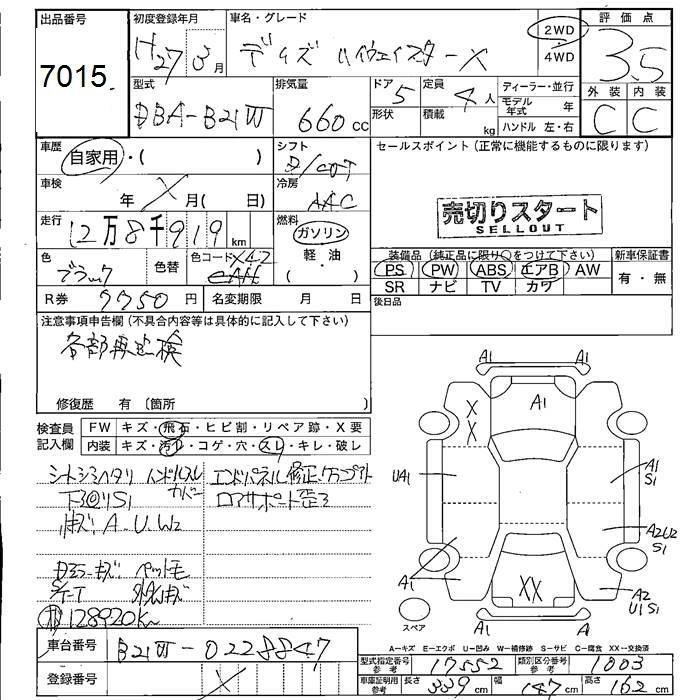 出品番号
7015
初度登録年月
H27年3月
車名・グレード
デイズ ハイウェイスターX
2WD・4WD
評価点
3.5
外装 内装
C C
型式
DBA-B21W
排気量
660cc
ドア 5
形状
定員 4人
積載 kg
ディーラー・並行
モデル年式 年
ハンドル 左・右
車歴
自家用・( )
シフト
D/COT
セールスポイント (正常に機能するものに限ります)
売切りスタート
SELLOUT
車検
年 X 月( 日)
冷房
AAC
走行
12万8千919km
燃料
ガソリン
軽・油
( )
色
ブラック
色替
色コード X42
R券 7750円
名変期限 月 日
装備品 (純正品に限り○をつけて下さい)
PS PW ABS エアB AW
SR ナビ TV カワ
新車保証書
有・無
後日品
注意事項申告欄 (不具合内容等は具体的に記入して下さい)
各部再点検
修復歴 有 〔箇所 〕
検査員記入欄
FW キズ・飛石・ヒビ割・リペア跡・X要
内装 キズ・汚れ・コゲ・穴・スレ・キレ・破レ
シートシミヘタリ ハンドルスレ
カバー
下回りS1
キズ A.U.W2
エンドパネル修正
ロアサポート歪ミ
ペット毛
128920K
車台番号 B21W-0228847
登録番号 X
A1 A
A1
X
X
UA1
A1
S1
A2U2
S1
A1
XX
A2
U1 S1
A1 A
スペア
A=キズ E=エクボ U=凹み W=補修跡 S=サビ C=腐食 XX=交換済
型式指定番号 参考 17552
類別区分番号 参考 1003
車庫証明用 参考 長さ 339cm 幅 147cm 高さ 162cm